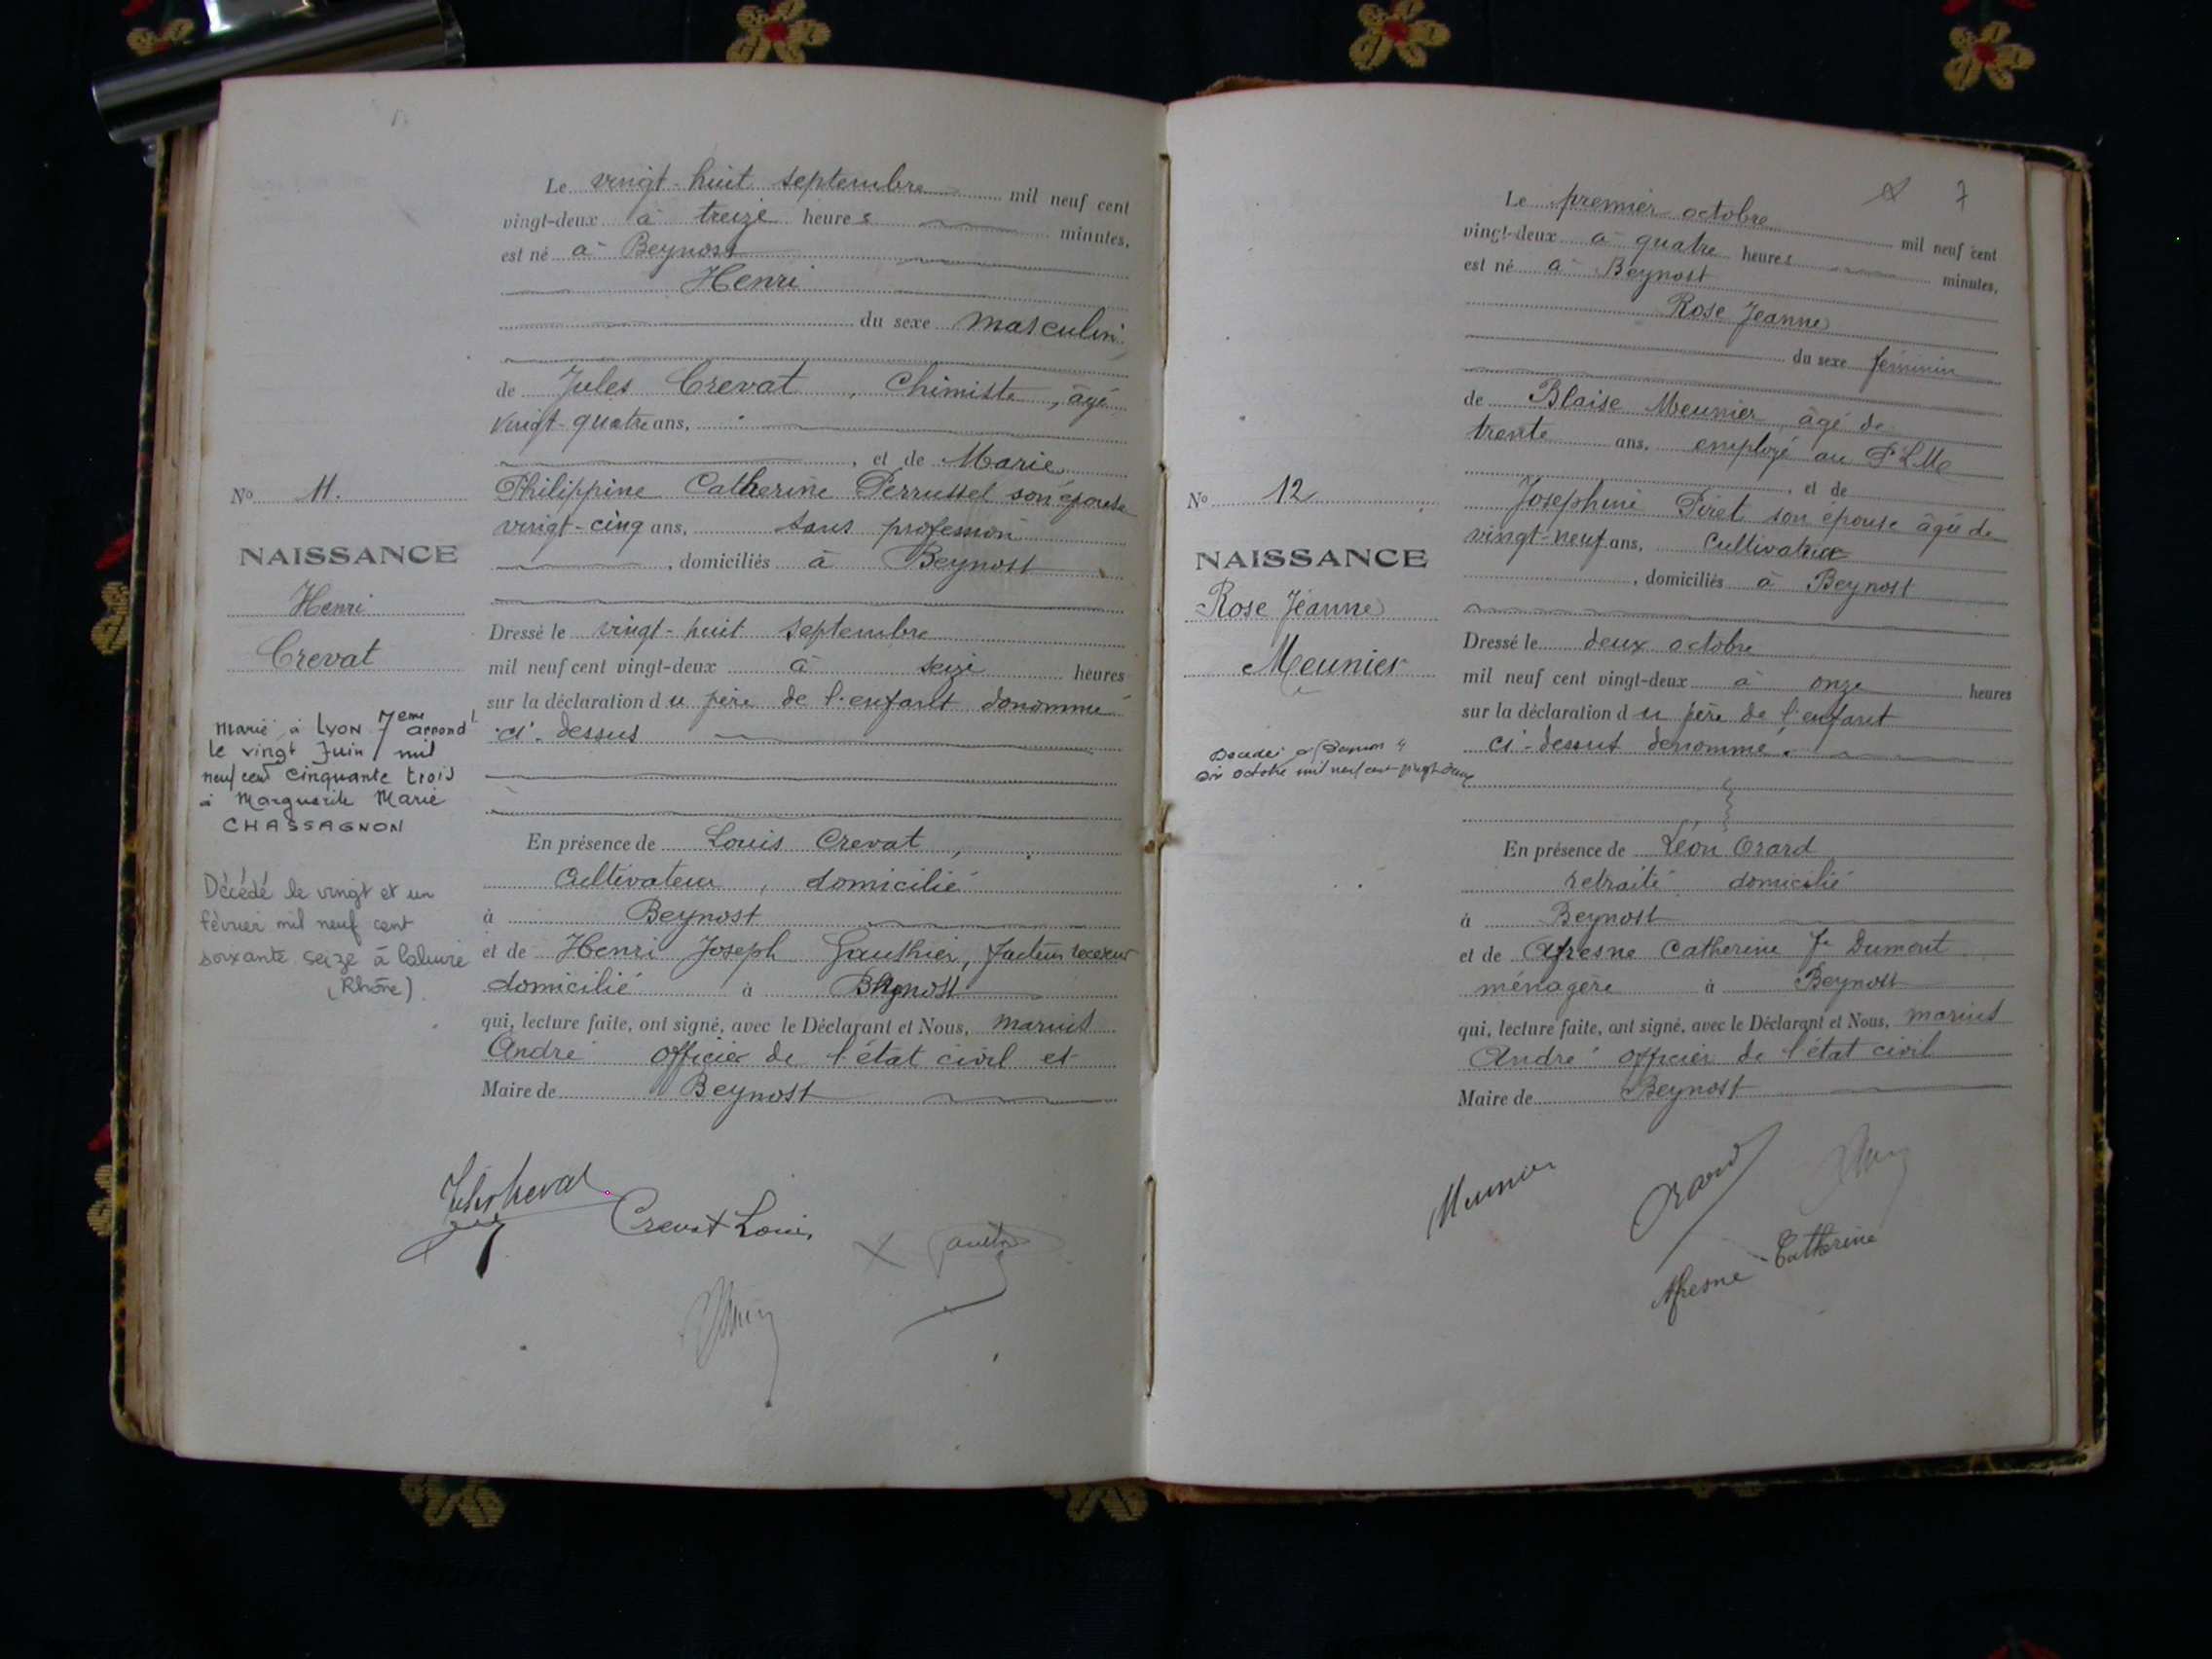 Le vingt-huit septembre mil neuf cent
vingt-deux à treize heures minutes,
est né à Beynost
Henri
du sexe masculin
de Jules Crevat, Chimiste, âgé
vingt-quatre ans,
, et de Marie
Philippine Catherine Perrussel son épouse
vingt-cinq ans, sans profession
, domiciliés à Beynost
Dressé le vingt-huit septembre
mil neuf cent vingt-deux à seize heures
sur la déclaration du père de l'enfant donommé
ci-dessus
En présence de Louis Crevat,
Cultivateur, domicilié
à Beynost
et de Henri Joseph Gauthier, facteur receveur
domicilié à Beynost
qui, lecture faite, ont signé, avec le Déclarant et Nous, Marius
André officier de l'état civil et
Maire de Beynost
No 11.
NAISSANCE
Henri
Crevat
Marié à Lyon 7eme arrondt
le vingt Juin mil
neuf cent cinquante trois
à Marguerite Marie
CHASSAGNON
Décédé le vingt et un
février mil neuf cent
soixante seize à Caluire
(Rhône).
Crevat Louis
7
Le premier octobre mil neuf cent
vingt-deux à quatre heures minutes,
est né à Beynost
Rose Jeanne
du sexe féminin
de Blaise Meunier âgé de
trente ans, employé au PLM
, et de
Josephine Piret son épouse âgée de
vingt-neuf ans, Cultivatrice
, domiciliés à Beynost
Dressé le deux octobre
mil neuf cent vingt-deux à onze heures
sur la déclaration du père de l'enfant
ci-dessus denommé.
En présence de Léon Orard
retraité domicilié
à Beynost
et de Afresne Catherine Fe Dumont
ménagère à Beynost
qui, lecture faite, ont signé, avec le Déclarant et Nous, Marius
André officier de l'état civil
Maire de Beynost
No 12
NAISSANCE
Rose Jeanne
Meunier
octobre mil neuf cent vingt deux
Meunier
Orard
Afresne Catherine